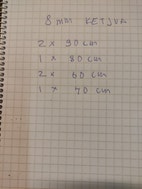 8 mm KETJUA
2 x 90 cm
1 x 80 cm
2 x 60 cm
1 x 70 cm